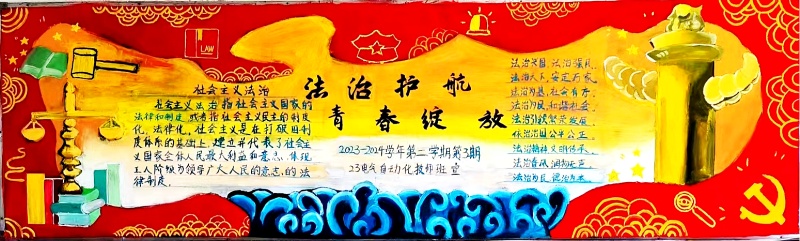 LAW
社会主义法治
社会主义法治指社会主义国家的
法律和制度,或者指社会主义民主的制度
化、法律化。社会主义是在打破旧制
度体系的基础上,建立并代表了社会主
义国家全体人民最大利益和意志,体现
工人阶级为领导广大人民的意志的法
律制度。
法治护航
青春绽放
2023-2024学年第二学期第3期
23电气自动化技师班宣
法治兴国,法治强民
法治天下,安定万家
法治为基,社会有序
法治为民,和谐社会
法治引领繁荣发展
依法治国公平公正
法治精神文明传承
法治春风,润物无声
法治为民,德治为本